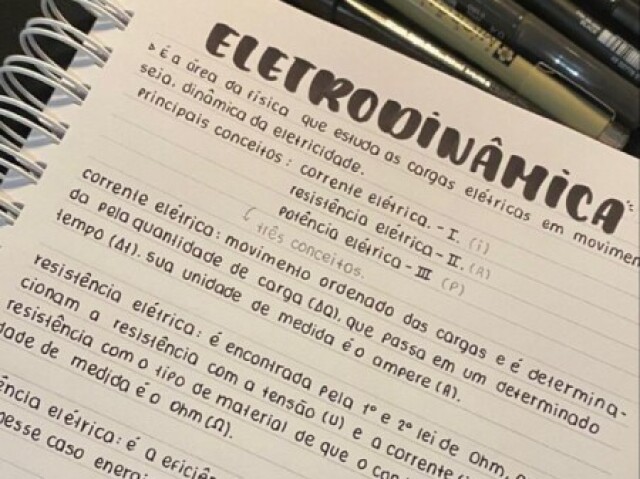 ELETRODINÂMICA
▹ É a área da física que estuda as cargas elétricas em
seja, dinâmica da eletricidade.
Principais conceitos: corrente elétrica. - I. (i)
resistência elétrica - II. (R)
Potência elétrica - III (P)
três conceitos.
corrente elétrica: movimento ordenado das cargas e é determina-
da pela quantidade de carga (ΔQ), que passa em um determinado
tempo (Δt). sua unidade de medida é o ampere (A).
resistência elétrica: é encontrada pela 1º e 2º lei de Ohm,
cionam a resistência com a tensão (U) e a corrente
resistência com o tipo de material de que o
de medida é o Ohm (Ω).
elétrica: é a
nesse caso